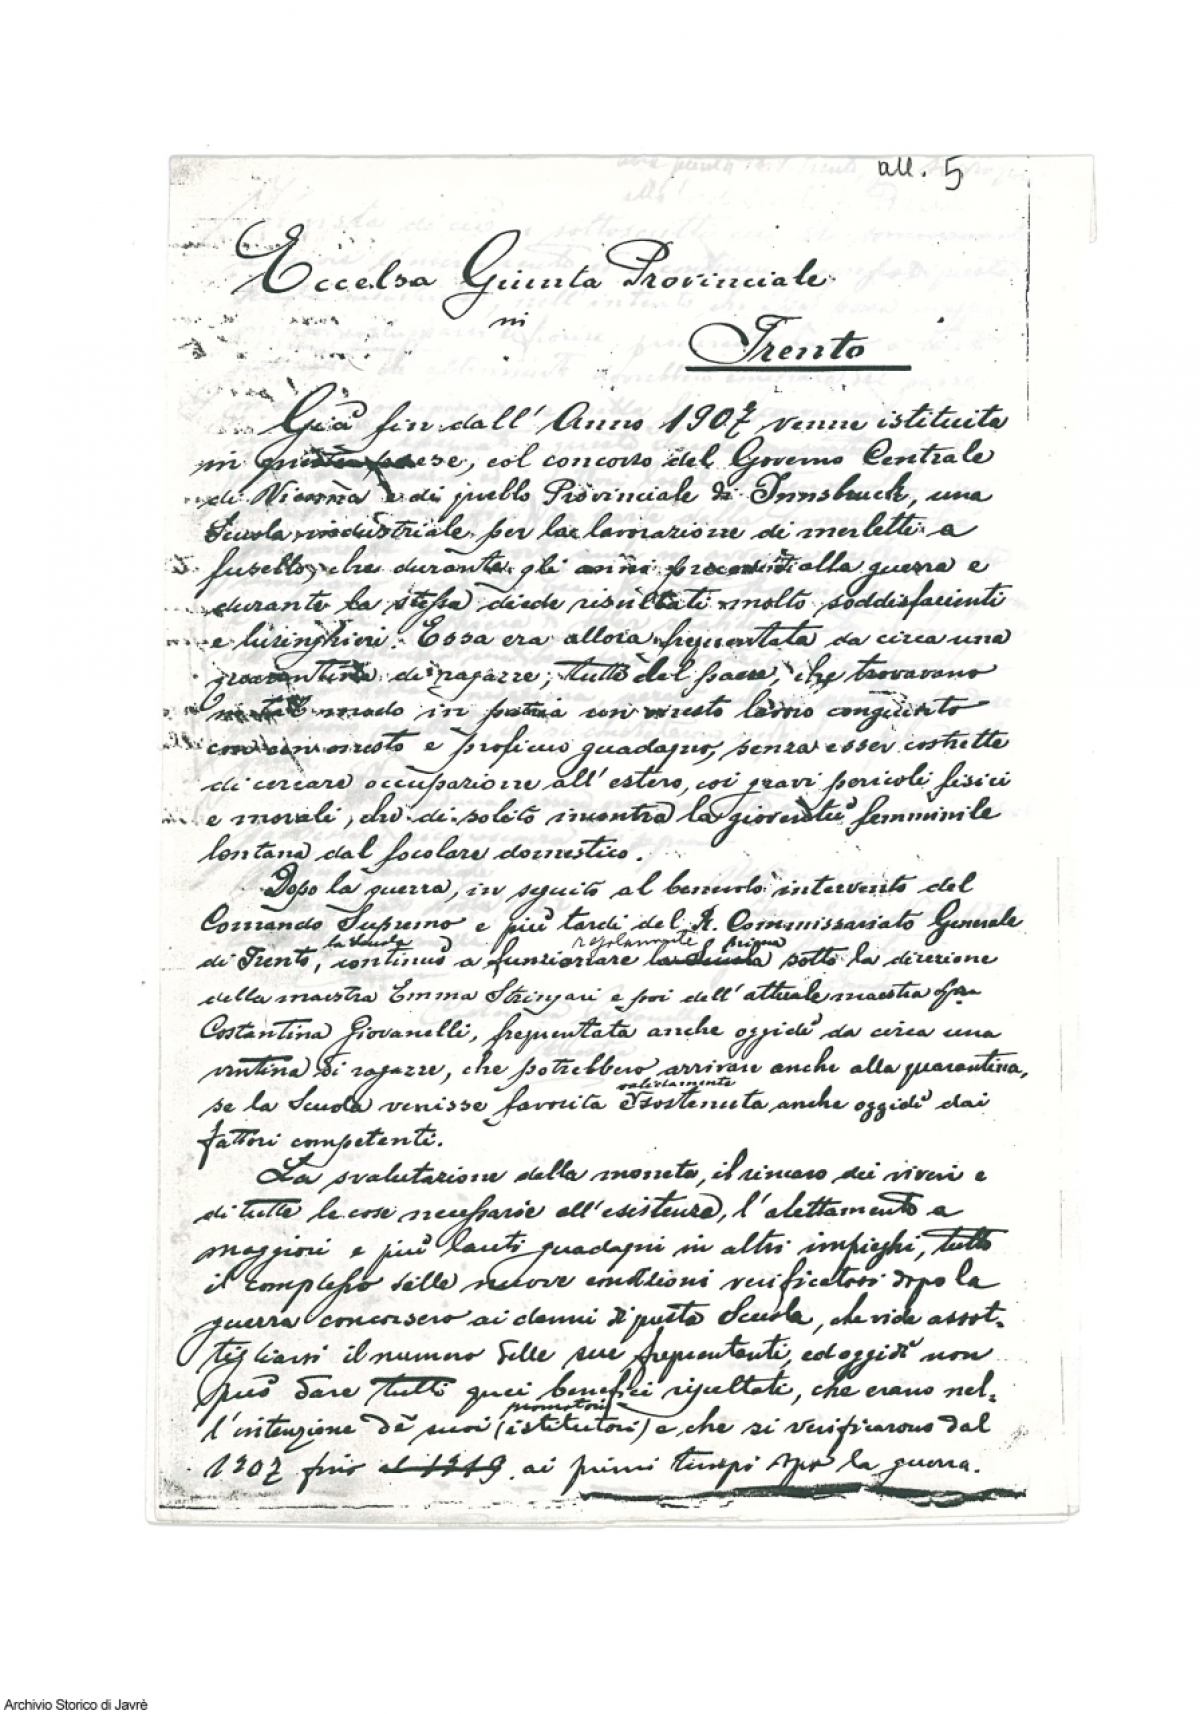 all. 5
Eccelsa Giunta Provinciale
in
Trento
Già fin dall' Anno 1907 venne istituita
in questo paese, col concorso del Governo Centrale
di Vienna e di quello Provinciale di Innsbruck, una
Scuola industriale per la lavorazione di merletti a
fusello, che durante gli anni precedenti alla guerra e
durante la stessa diede risultati molto soddisfacienti
e lusinghieri. Essa era allora frequentata da circa una
quarantina di ragazze, tutte del paese, che trovavano
in tal modo in patria con questo lavoro congiunto
con un onesto e proficuo guadagno, senza esser costrette
di cercare occupazione all' estero, coi gravi pericoli fisici
e morali, che di solito incontra la gioventù femminile
lontana dal focolare domestico.
Dopo la guerra, in seguito al benevolo intervento del
Comando Supremo e più tardi del R. Commissariato Generale
la scuola regolarmente prima
di Trento, continuò a funzionare la Scuola sotto la direzione
della maestra Emma Stringari e poi dell' attuale maestra
Costantina Giovanelli, frequentata anche oggidì da circa una
ventina di ragazze, che potrebbero arrivare anche alla quarantina,
validamente
se la Scuola venisse favorita e sostenuta anche oggidì dai
fattori competenti.
La svalutazione della moneta, il rincaro dei viveri e
di tutte le cose necessarie all' esistenza, l' alettamento a
maggiori e più lauti guadagni in altri impieghi, tutto
il complesso delle nuove condizioni verificatesi dopo la
guerra concorsero ai danni di questa Scuola, che vide assot-
tigliarsi il numero delle sue frequentanti, ed oggidì non
può dare tutti quei benefici risultati, che erano nel-
promotori
l' intenzione de' suoi (istitutori) e che si verificarono dal
1907 fino al 1919 ai primi tempi dopo la guerra.
Archivio Storico di Javrè